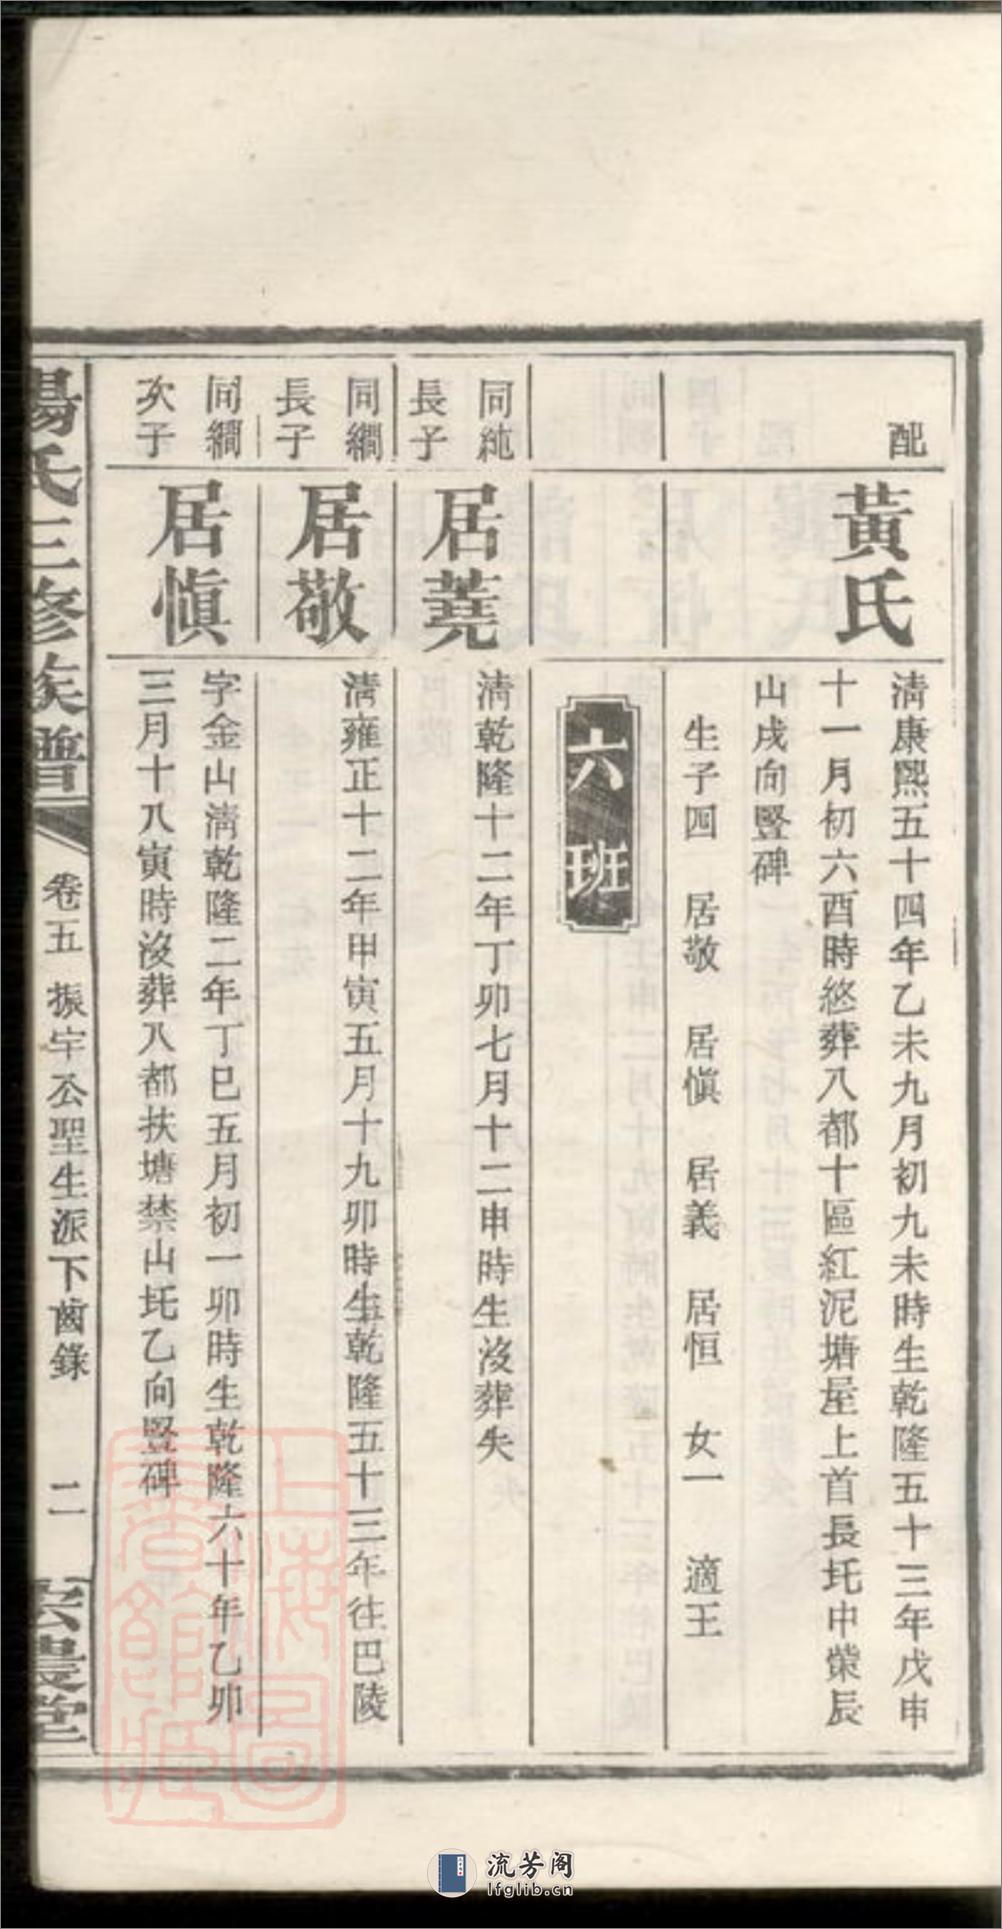 配
黃氏
清康熙五十四年乙未九月初九未時生乾隆五十三年戊申
十一月初六酉時終葬八都十區紅泥塘屋上首長圫中塋辰
山戌向豎碑
生子四 居敬 居愼 居義 居恒 女一 適王
六班
同純
長子
居蕘
清乾隆十二年丁卯七月十二申時生沒葬失
同繝
長子
居敬
清雍正十二年甲寅五月十九卯時生乾隆五十三年往巴陵
同繝
次子
居愼
字金山清乾隆二年丁巳五月初一卯時生乾隆六十年乙卯
三月十八寅時沒葬八都扶塘禁山圫乙向豎碑
楊氏三修族譜
卷五 振宇公聖生派下齒錄 二
宏農堂
上海圖
書館藏
流芳阁
lfglib.cn